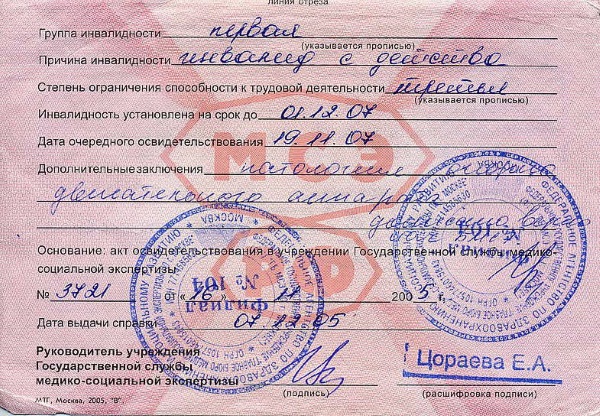 линия отреза
Группа инвалидности первая
(указывается прописью)
Причина инвалидности инвалид с детства
Степень ограничения способности к трудовой деятельности третья
(указывается прописью)
Инвалидность установлена на срок до 01.12.07
Дата очередного освидетельствования 19.11.07
Дополнительные заключения патология опорно
двигательного аппарата
Основание: акт освидетельствования в учреждении Государственной службы медико-
социальной экспертизы
№ 3721 от "16" 11 2005 г.
Дата выдачи справки 07.12.05
Руководитель учреждения
Государственной службы
медико-социальной экспертизы
(подпись)
Цораева Е.А.
(расшифровка подписи)
МТГ, Москва, 2005, "В".
МСЭ
филиал
№ 104
МОСКВА
филиал
№ 104